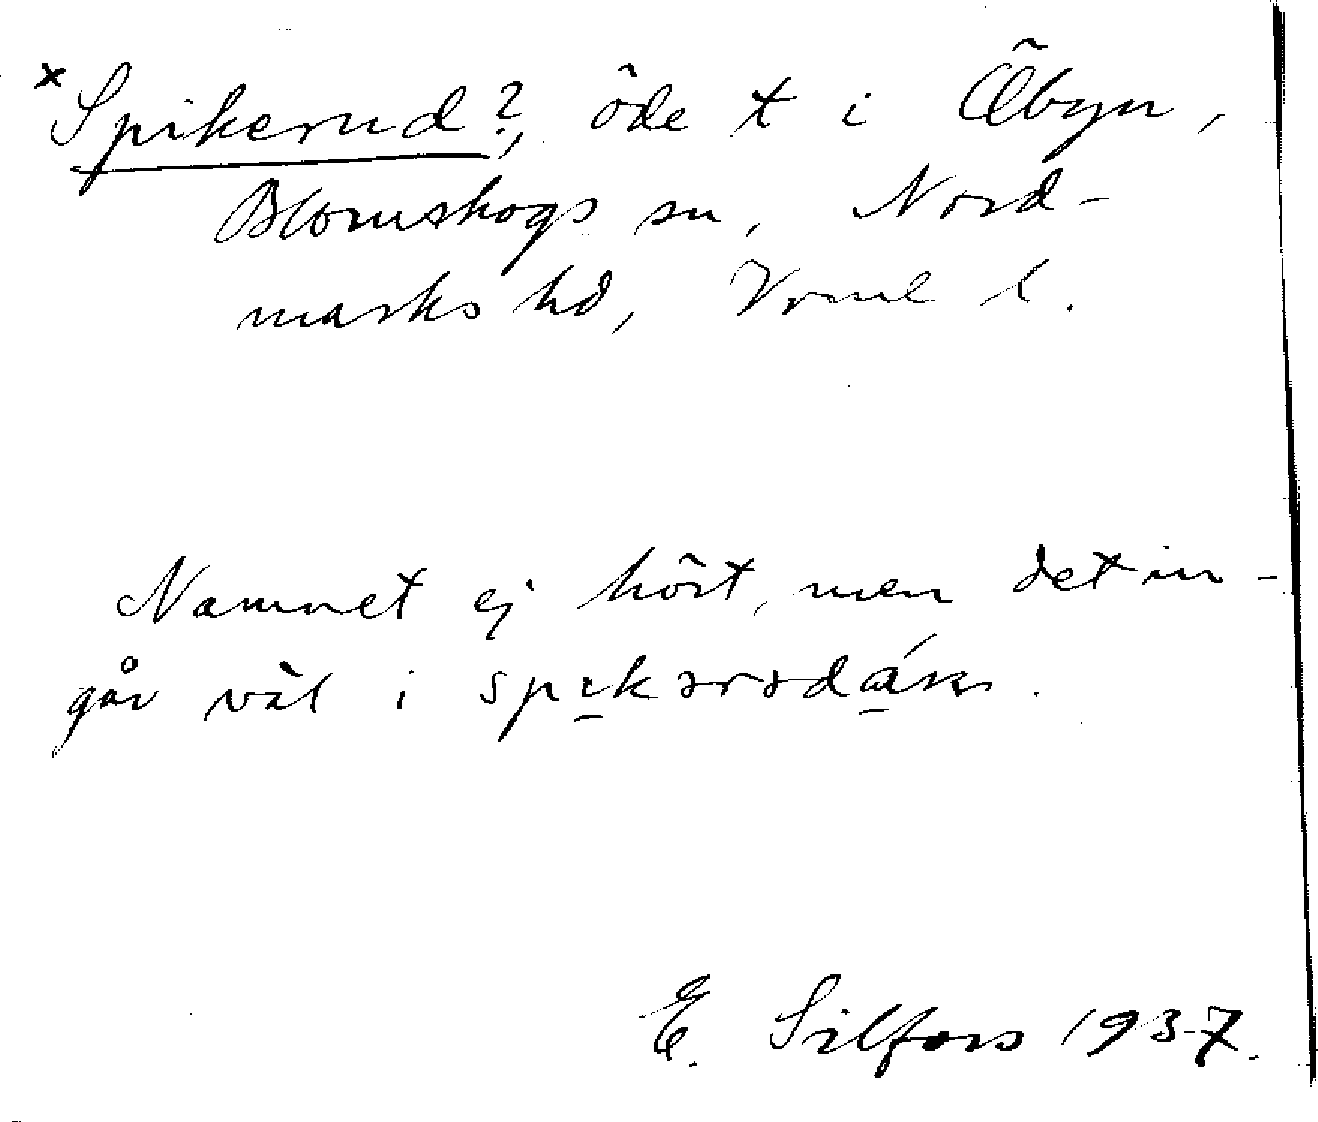 ×Spikerud?, öde t i Öbyn,
Blomskogs sn, Nord-
marks hd, Vrml l.
Namnet ej hört, men det in-
går väl i
E. Silfors 1937.